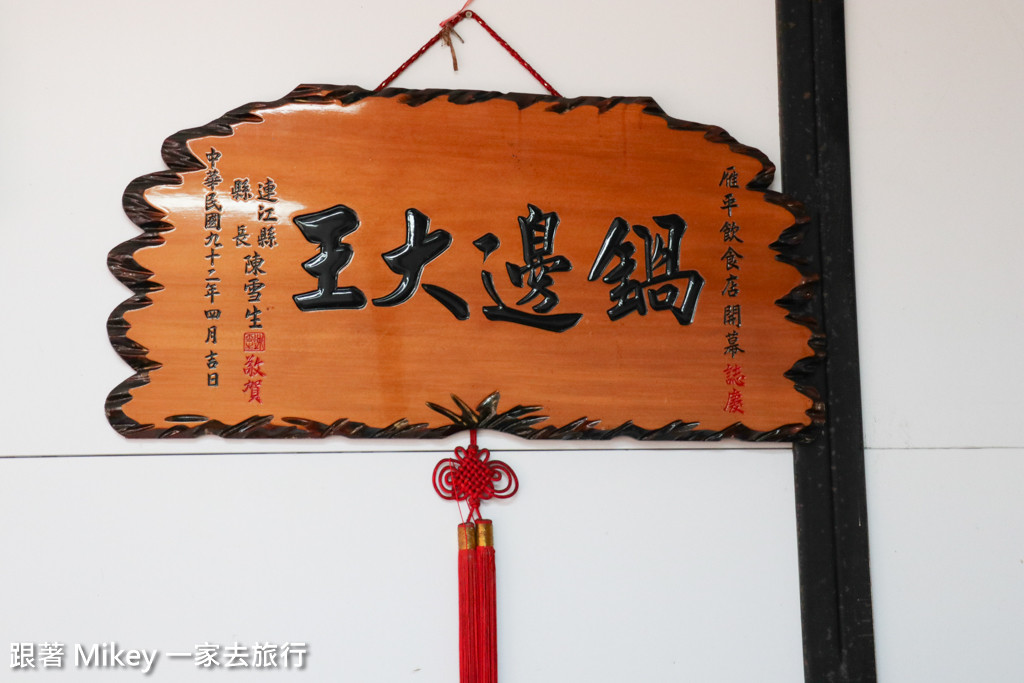 雁平飲食店開幕誌慶
鍋邊大王
連江縣
縣長陳雪生敬賀
中華民國九十二年四月吉日
跟著 Mikey 一家去旅行